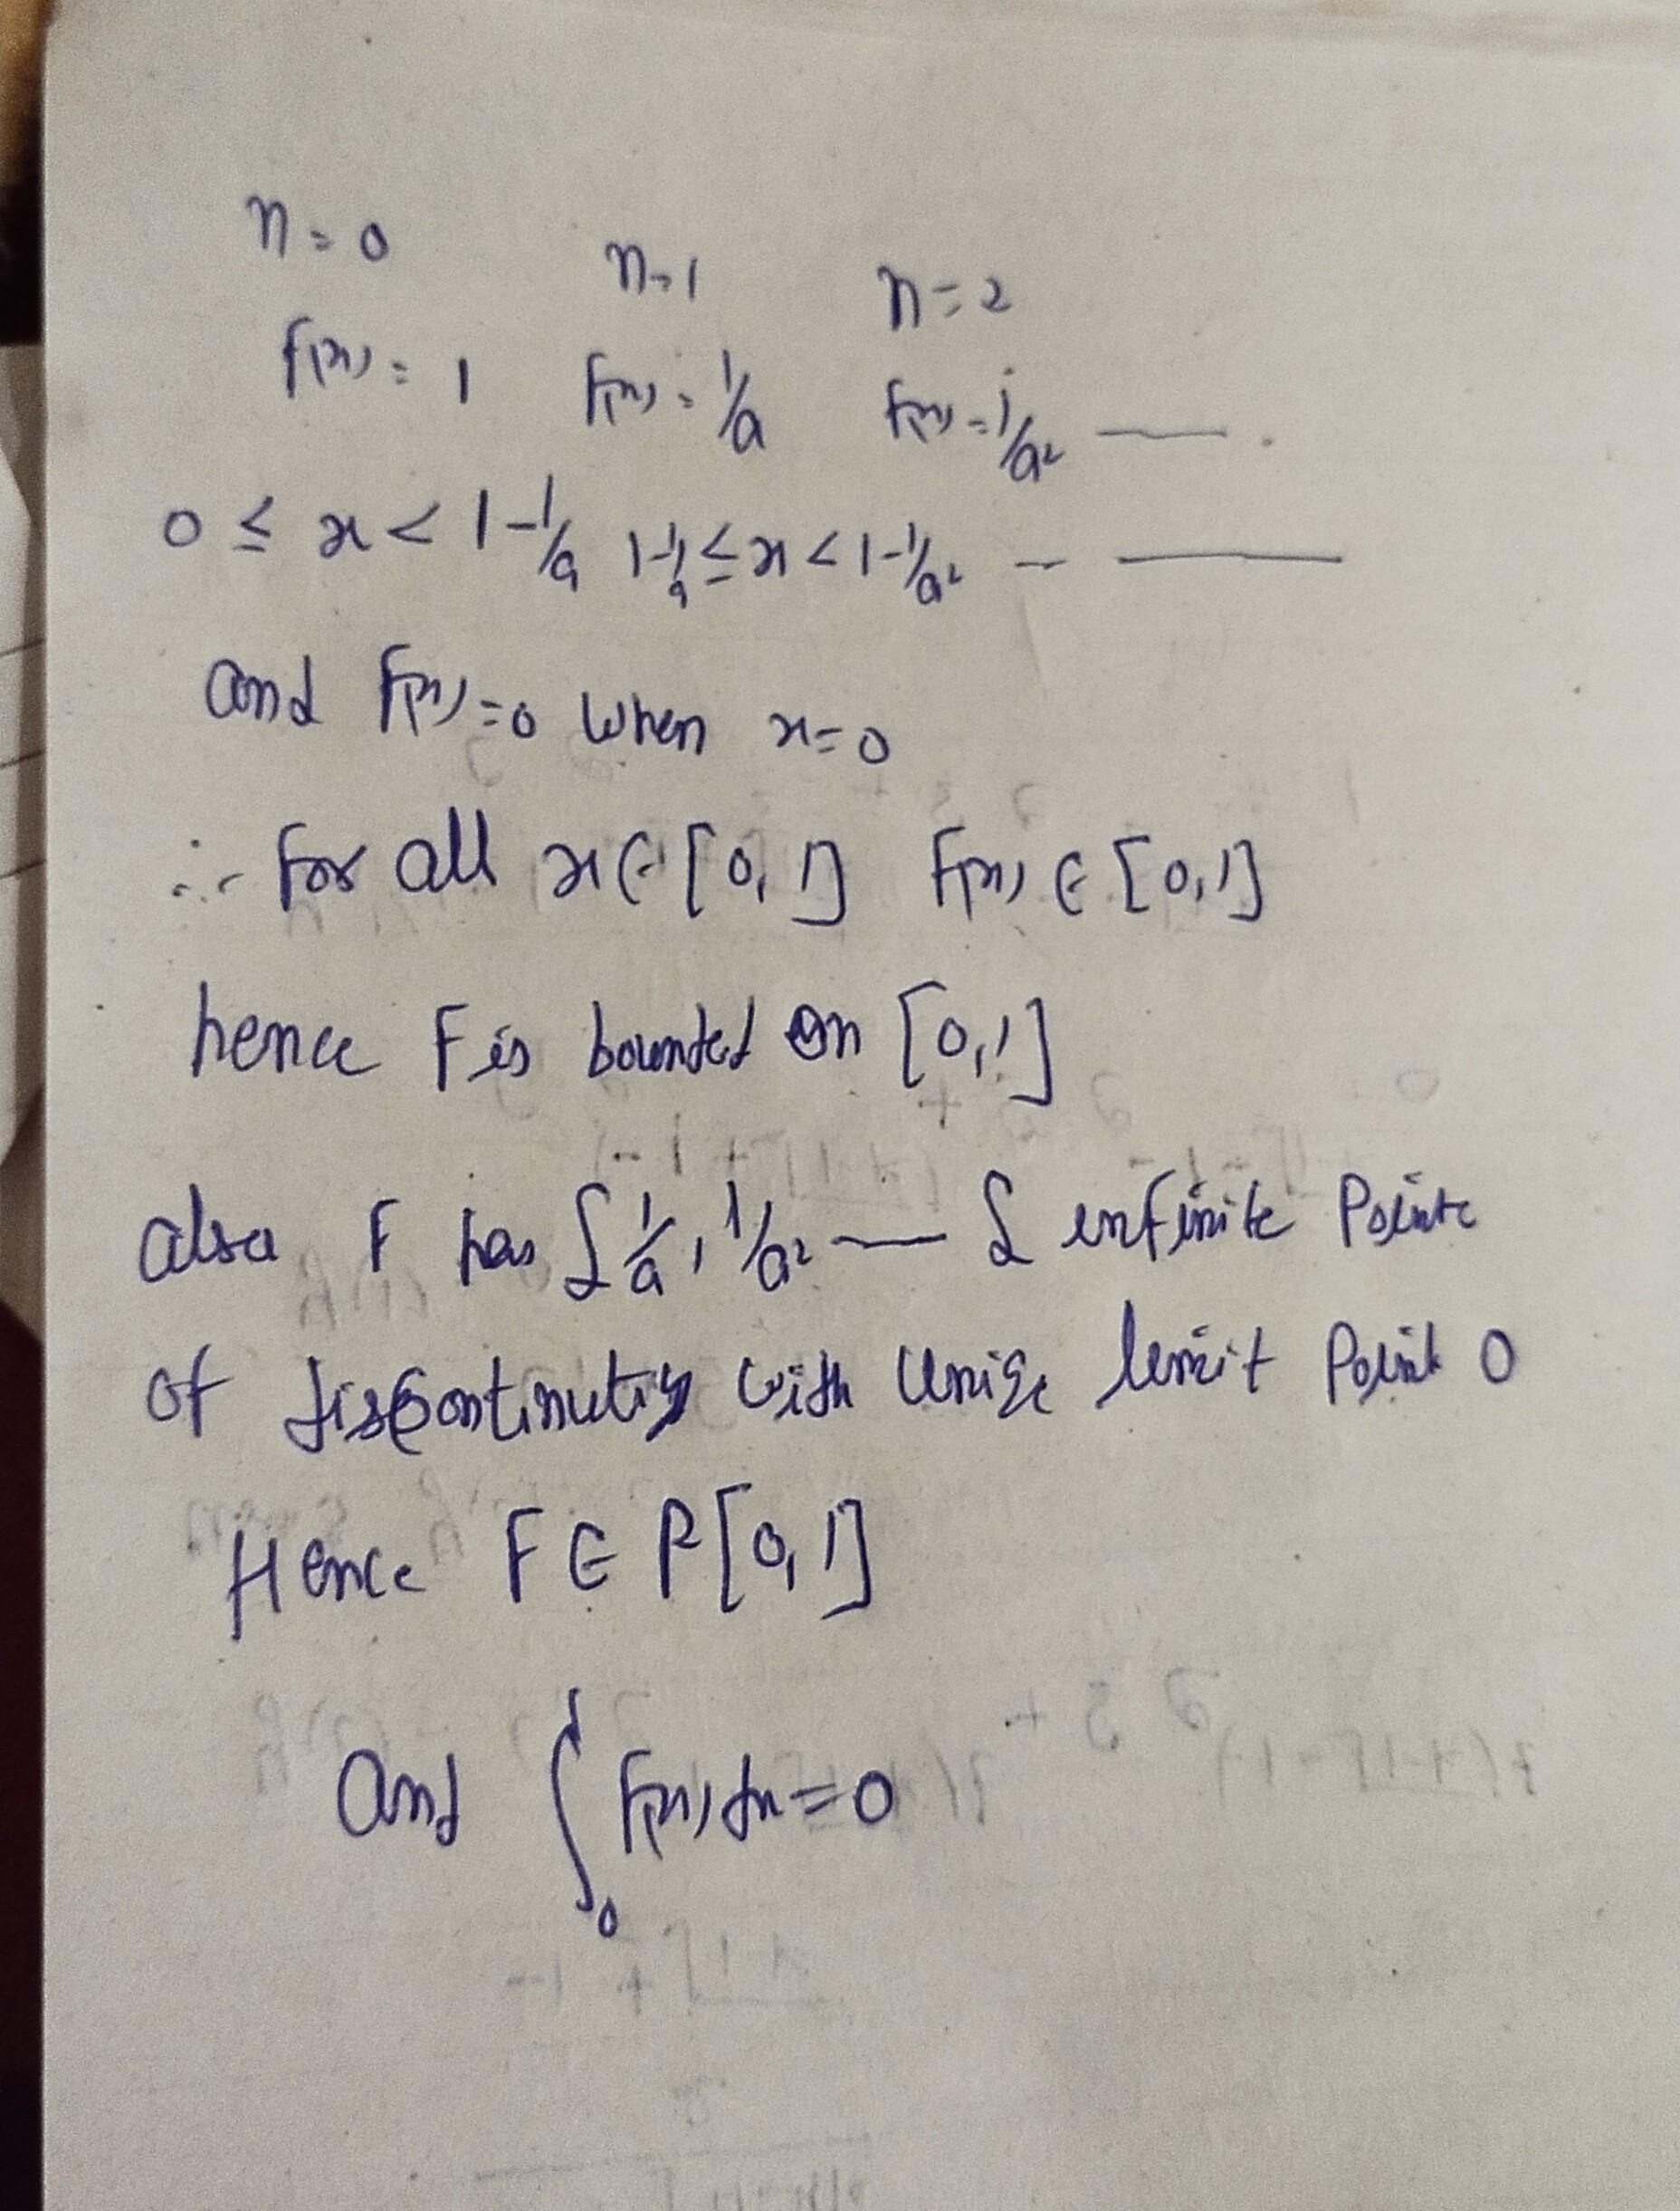 n=0 n=1 n=2
f(x)=1 f(x)=1/a f(x)=1/a² —— .
0 ≤ x < 1-1/a 1-1/a ≤ x < 1-1/a² - ——
and f(x)=0 when x=0
∴ for all x∈[0,1] f(x) ∈ [0,1]
hence F is bounded on [0,1]
also F has { 1/a, 1/a² — } infinite Points
of discontinutiy with Uniqe limit Point 0
Hence F∈ R[0,1]
And ∫₀¹ f(x)dx=0